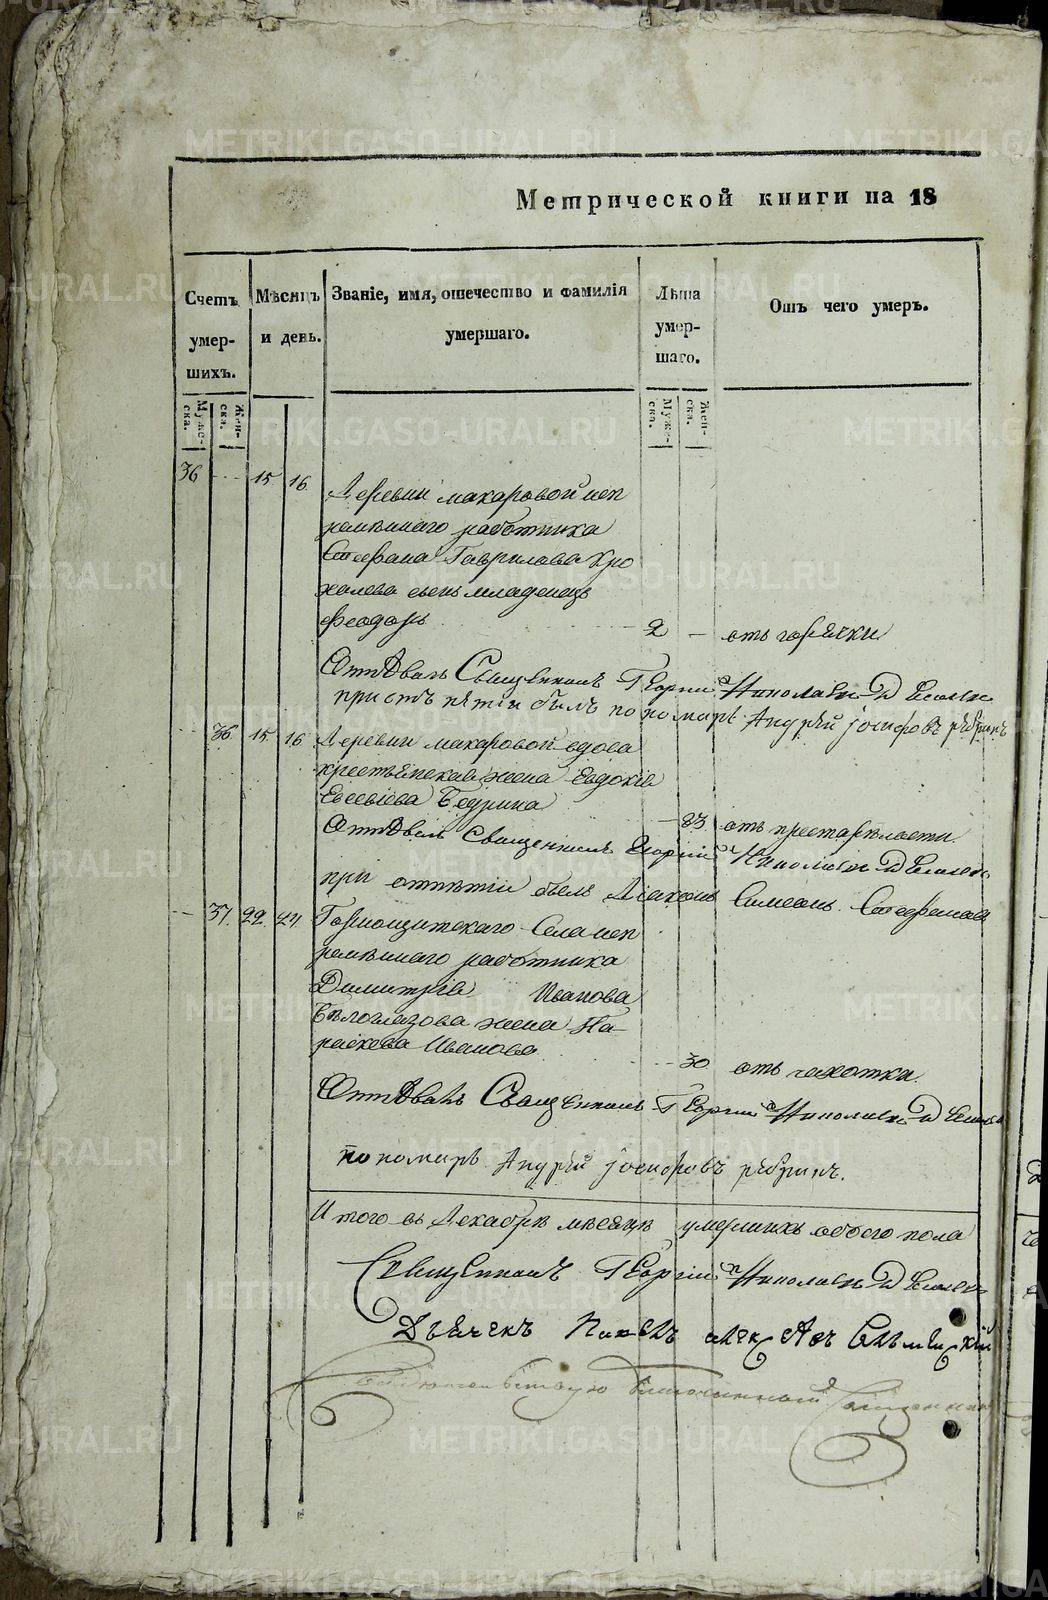 Метрической книги на 18
Счетъ умершихъ.
Мѣсяцъ и день.
Званіе, имя, отечество и фамилія умершаго.
Лѣта умершаго.
Отъ чего умеръ.
Мужеска. Женска.
Мужеска. Женска.
36 15 16
Деревни макаровой неп
ремѣннаго работника
Стефана Гаврилова Кро
халева сынъ младенецъ
феодоръ 2 отъ горячки
Отпѣвалъ Священникъ Георгий Николаевъ
при отпѣтіи былъ пономарь Андрѣй іосифовъ
36 15 16 Деревни макаровой вдова
крестьянская жена Евдокія
Евсевіева 83 отъ престарѣлости
Отпѣвалъ Священникъ Георгій Николаевъ
при отпѣтіи былъ Діаконъ Симеонъ Стефановъ
37 22 24 Горнощитскаго Села неп
ремѣннаго работника
Димитрія Иванова
Бѣлоглазова жена Па-
раскева Иванова 30 отъ чахотки.
Отпѣвалъ Священникъ Георгий Николаевъ
пономарь Андрѣй іосифовъ
Итого въ Декабрѣ мѣсяцѣ умершихъ обоего пола
Священникъ Георгій Николаевъ
Дьячекъ
Благочинный Священникъ
METRIKI.GASO-URAL.RU